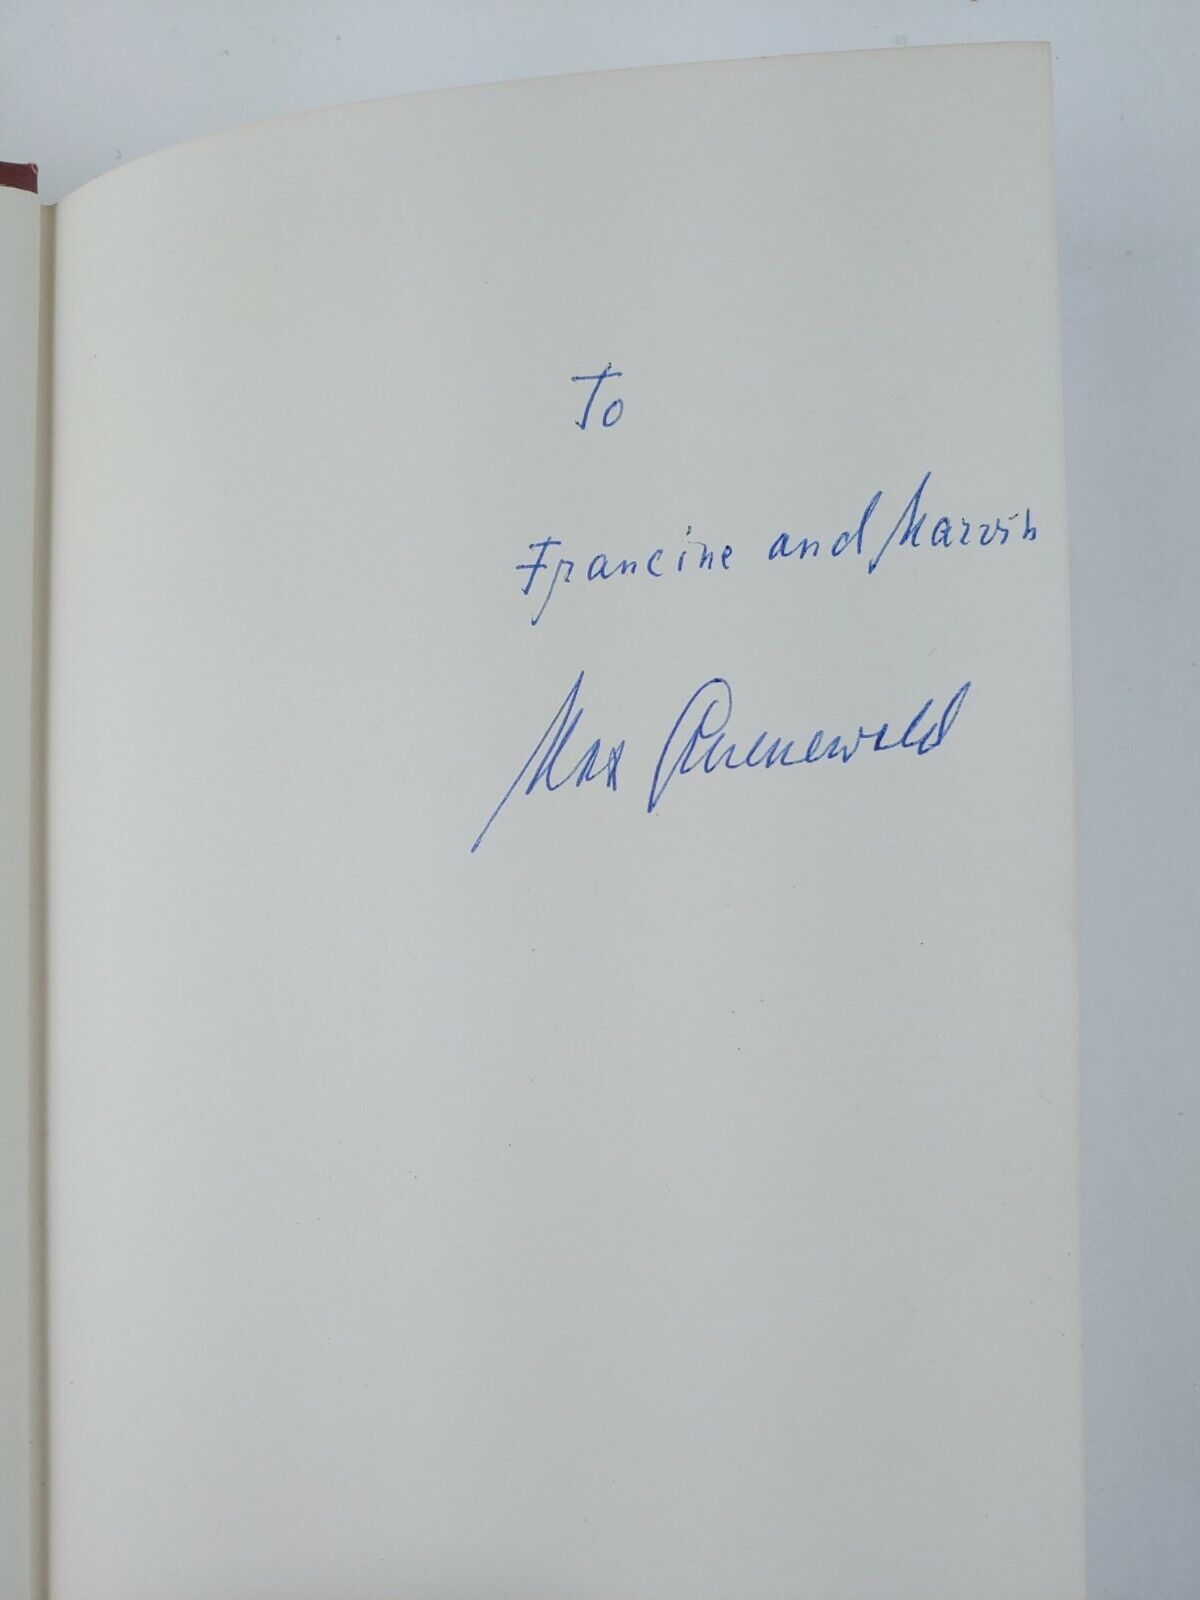 To
Francine and Marvin
Max Gruenewald